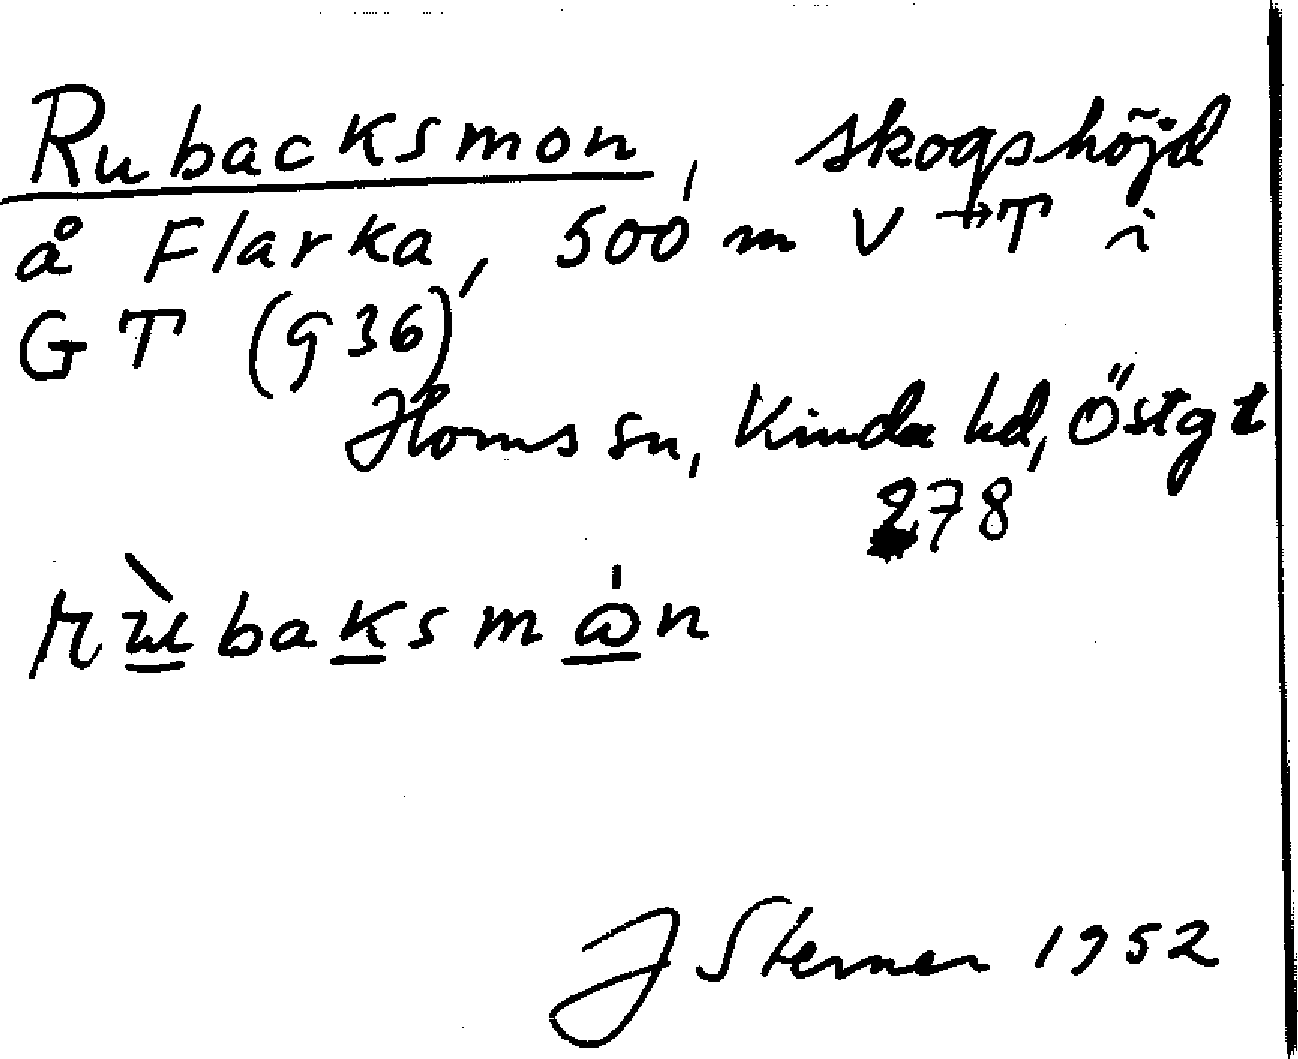 Rubacksmon, skogshöjd
å Flarka, 500 m V →T i
GT (936)
Horns sn, Kinda hd, Östgt
278
rùbaksmån
J Sterner 1952